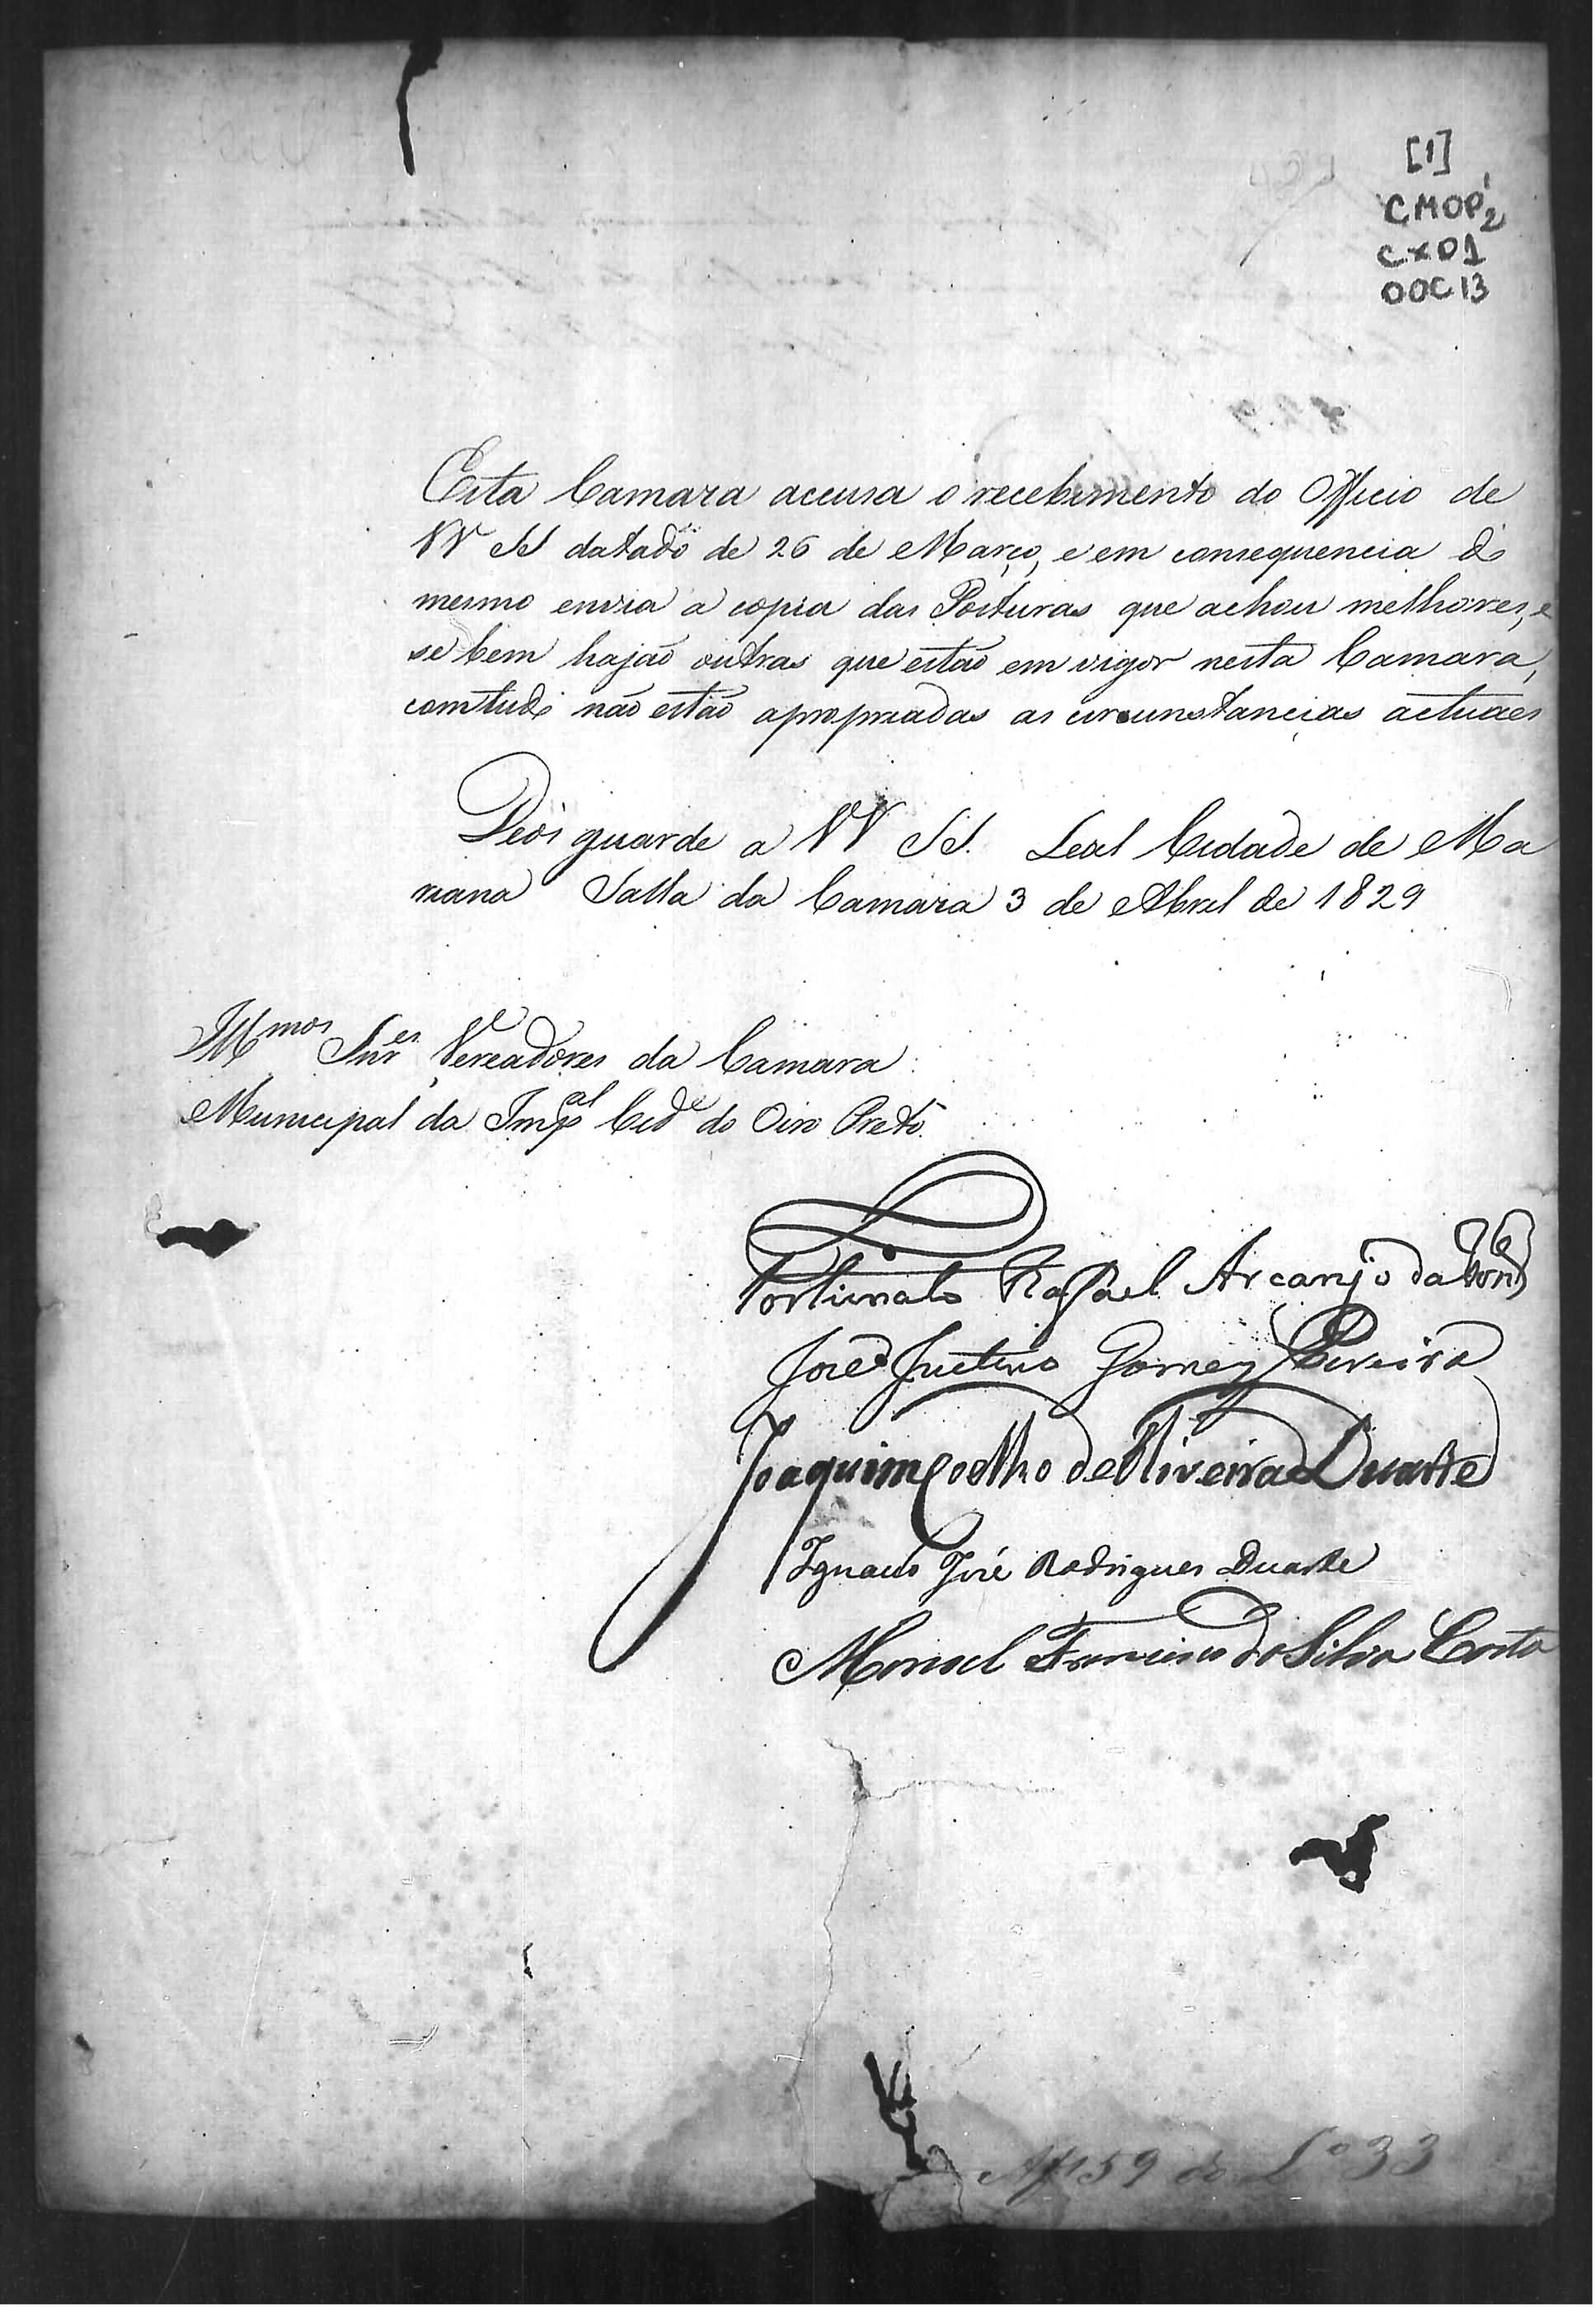 [1]
CMOP 2
CX01
DOC 13
Esta Camara accusa o recebimento do Officio de
VV SS datado de 26 de Março, e em consequencia do
mesmo envia a copia das Posturas que achou melhores, e
se bem hajão outras que estão em vigor nesta Camara,
comtudo não estão apropriadas as circunstancias actuaes
Deos guarde a VV SS. Leal Cidade de Ma
riana Salla da Camara 3 de Abril de 1829
Illmos Snres Vereadores da Camara
Municipal da Impal Cide do Oiro Preto.
Fortunato Rafael Arcanjo da
José Justino Gomes Pereira
Joaquim Coelho de Oliveira Duarte
Ignacio José Rodrigues Duarte
Manoel Francisco da Silva Costa
Af 159 do Lo 33